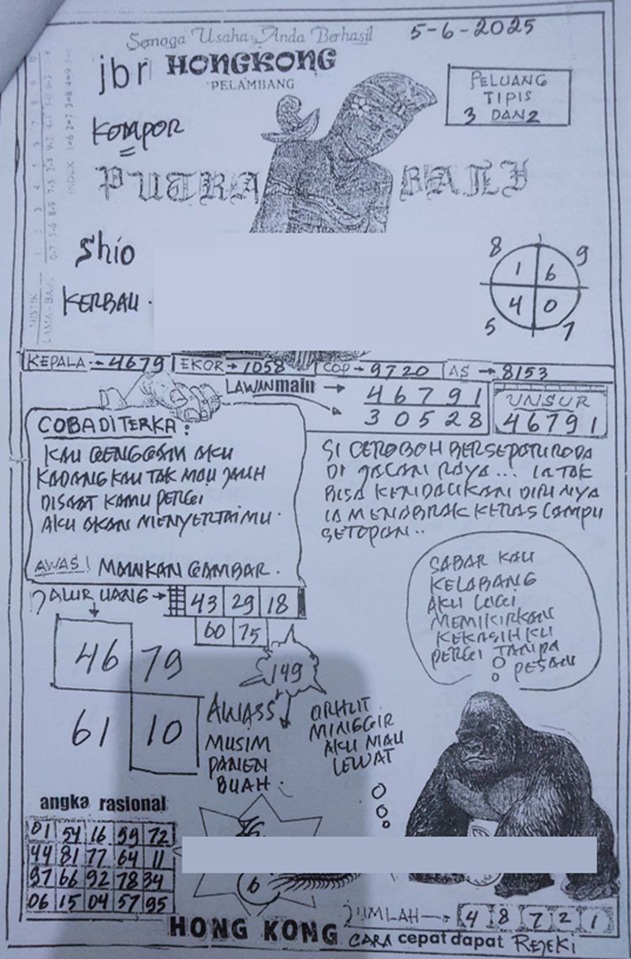 Semoga Usaha Anda Berhasil
5-6-2025
jbr HONGKONG
PELAMBANG
PELUANG
TIPIS
3 DAN 2
KOMPOR
PUTRA BALI
Shio
KERBAU.
8 9
1 6
4 0
5 7
KEPALA → 4679 EKOR → 1058 COP → 9720 AS → 8153
LAWAN main → 46791
30528
UNSUR
46791
COBA DITERKA:
KAU GENGGAM AKU
KADANG KAU TAK MAU JAUH
DISAAT KAMU PERGI
AKU AKAN MENYERTAIMU.
AWAS! MAINKAN GAMBAR.
SI CEROBOH BERSEPATU RODA
DI JALAN RAYA... IA TAK
BISA KENDALIKAN DIRINYA
IA MENABRAK KERAS LAMPU
SETOPAN..
SABAR KAU
KELABANG
AKU LAGI
MEMIKIRKAN
KEKASIHKU
PERGI TANPA
PESAN
JALUR UANG → 43 29 18
60 75
46 79
149
61 10
AWASS
MUSIM
PANEN
BUAH.
MINGGIR
AKU MAU
LEWAT
angka rasional
01 54 16 59 72
44 81 77 64 11
37 66 92 78 34
06 15 04 57 95
6
JUMLAH → 4 8 7 2 1
HONG KONG CARA cepat dapat REJEKI